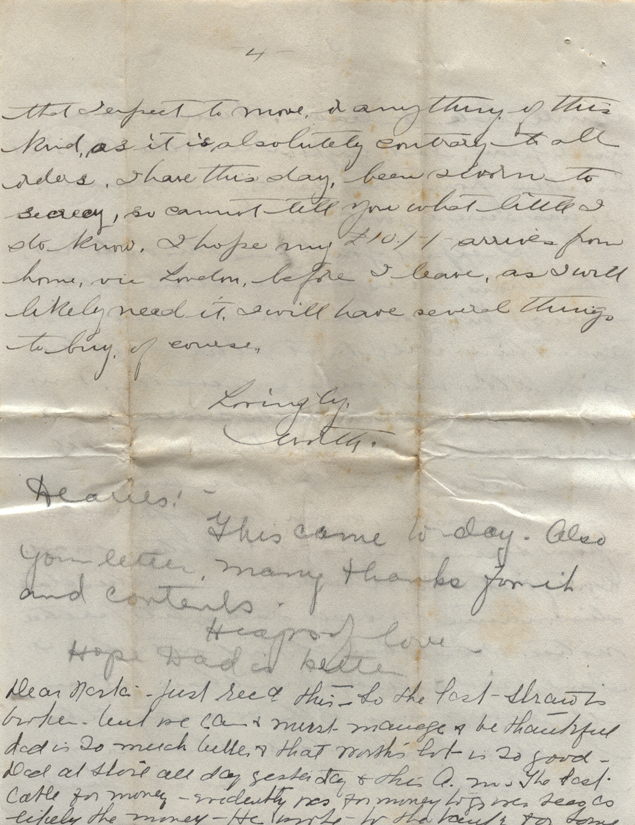 4
that I expect to move, or anything of this
kind, as it is absolutely contrary to all
orders. I have this day, been sworn to
secrecy, so cannot tell you what little I
do know. I hope my £10/-/- arrives from
home, via London, before I leave, as I will
likely need it. I will have several things
to buy, of course.
Lovingly,
Worth.
Dearies! -
This came to day. Also
your letter, many thanks for it
and contents.
Heaps of love -
Hope Dad is better
Dear - Just rec'd this - So the last straw is
broken - but we can & must manage & be thankful
dad is so much better & that Worth's lot is so good -
Dad at store all day yesterday & this A.M. The last
cable for money - evidently was for money to
likely the money - He wrote to the bank & for some